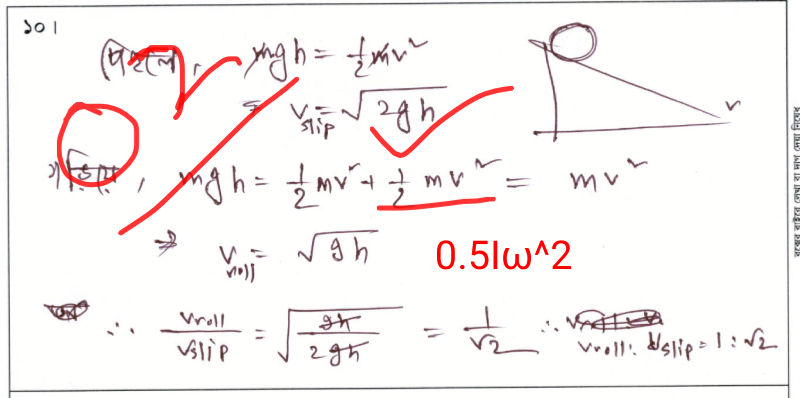 ১০।
পিছলে, mgh = ½mv²
v_slip = √2gh
v
গড়িয়ে, mgh = ½mv² + ½mv² = mv²
⇒ v_roll = √gh
0.5Iω^2
∴ v_roll/v_slip = √(gh/2gh) = 1/√2 ∴ v_roll : v_slip = 1 : √2